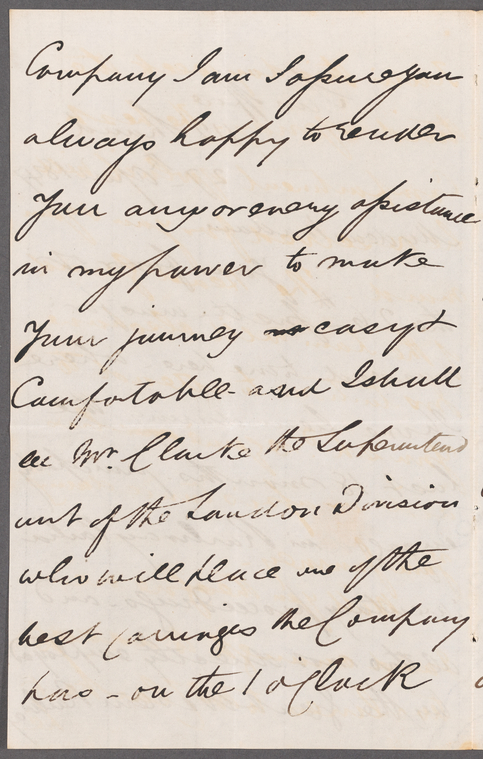 Company I am I assure you
always happy to render
you any or every assistance
in my power to make
your journey easy &
Comfortable - and I shall
see Mr. Clarke the Superintend
ant of the London Division
who will place one of the
best Carriages the Company
has - on the 1 oClock